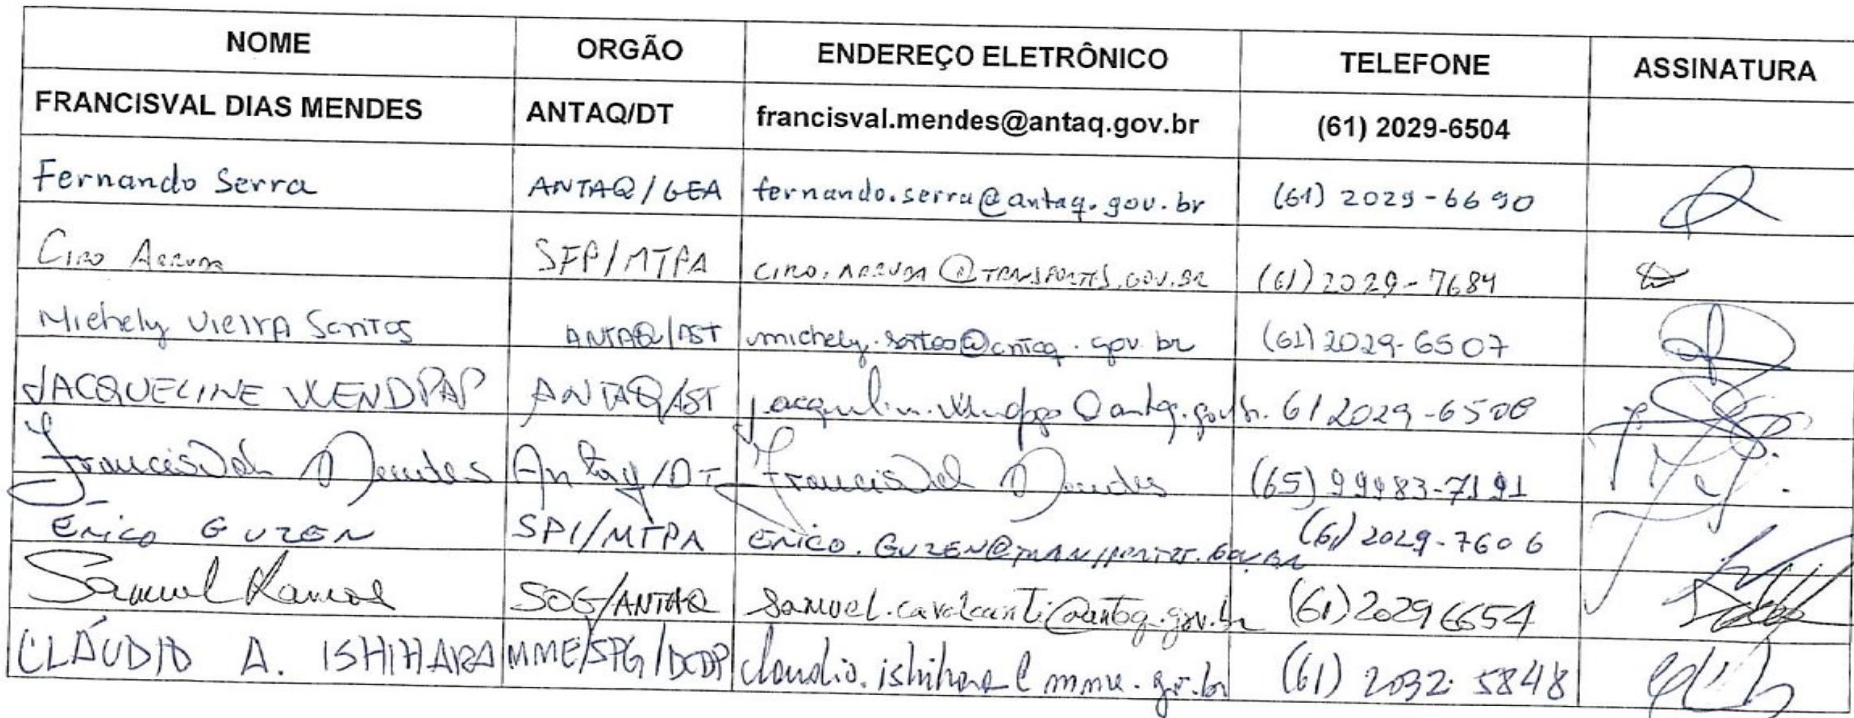 NOME ORGÃO ENDEREÇO ELETRÔNICO TELEFONE ASSINATURA
FRANCISVAL DIAS MENDES ANTAQ/DT francisval.mendes@antaq.gov.br (61) 2029-6504
Fernando Serra ANTAQ/GEA fernando.serra@antaq.gov.br (61) 2029-6690
Ciro Arruda SFP/MTPA ciro.arruda@transportes.gov.br (61) 2029-7684
Michely Vieira Santos ANTAQ/AST michely.santos@antaq.gov.br (61) 2029-6507
JACQUELINE WENDPAP ANTAQ/AST 61 2029-6508
Francisval Mendes Antaq/DT Francisval Mendes (65) 99983-7191
Érico GUZEN SPI/MTPA Erico.GUZEN@transportes.gov.br (61) 2029-7606
Samuel Ramos SOG/ANTAQ samuel.cavalcanti@antaq.gov.br (61) 2029 6654
CLÁUDIO A. ISHIHARA MME/SPG/DCDP claudio.ishihara@mme.gov.br (61) 2032-5848